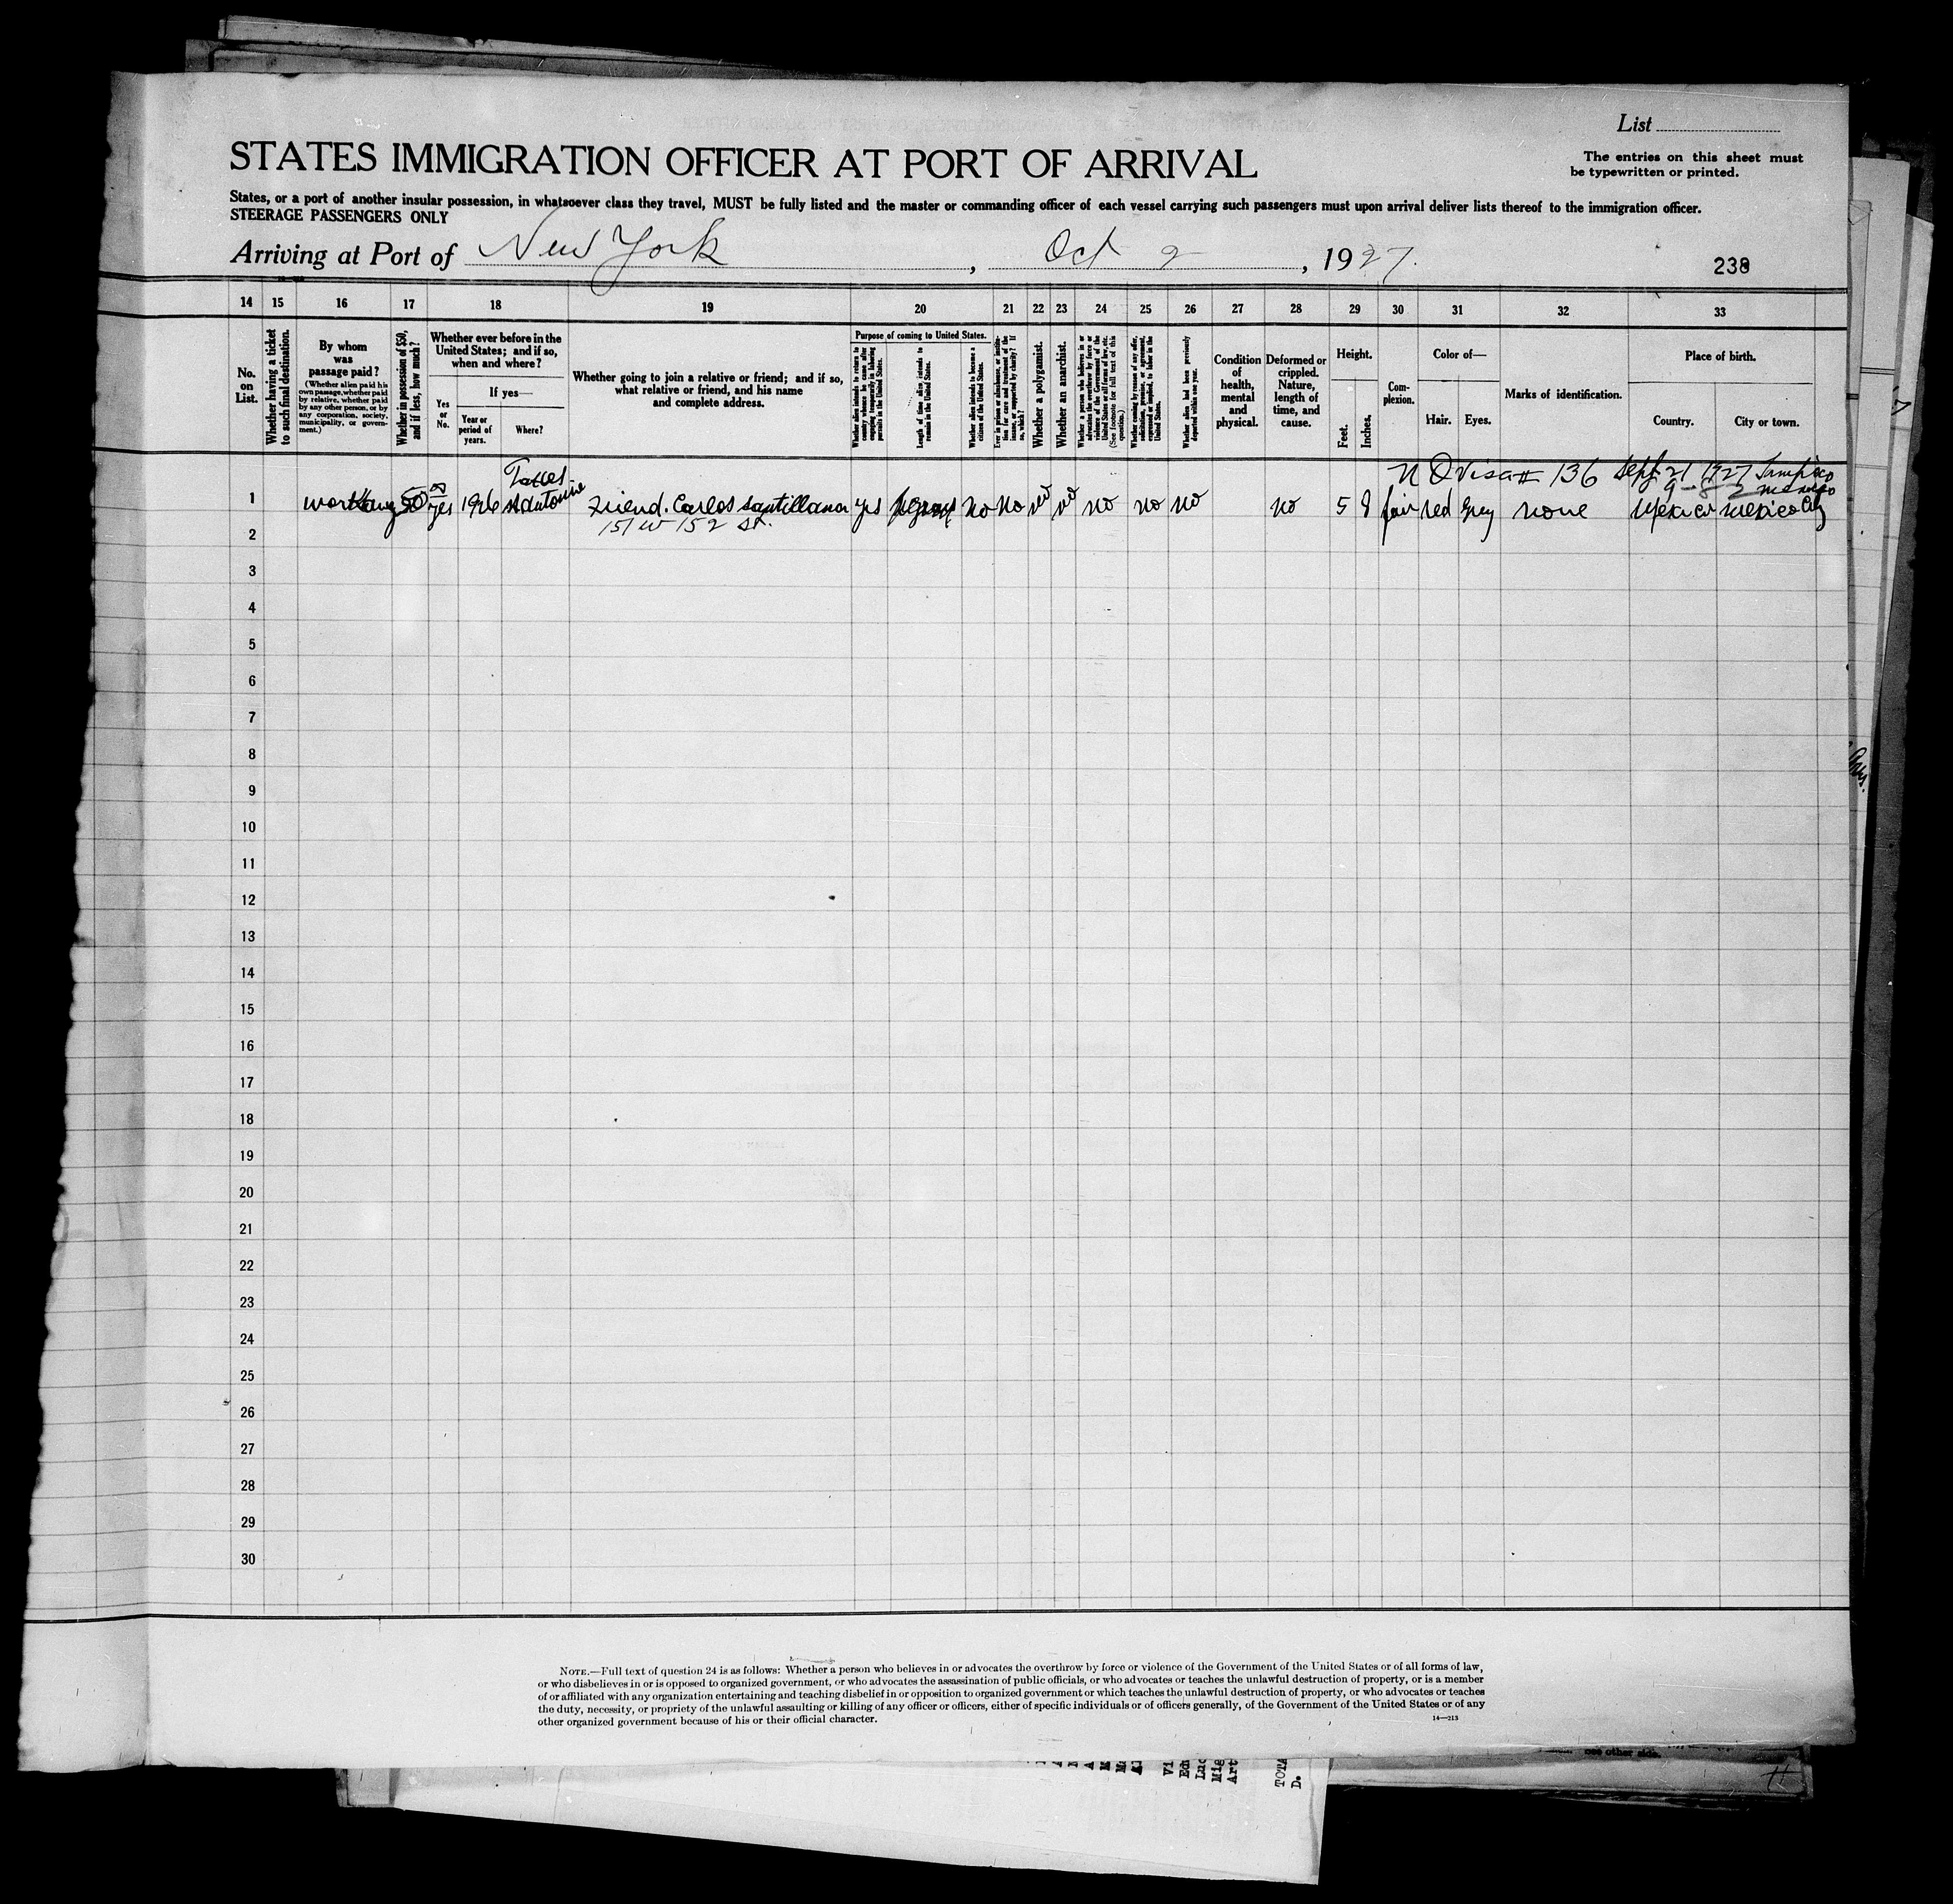 List
STATES IMMIGRATION OFFICER AT PORT OF ARRIVAL
The entries on this sheet must
be typewritten or printed.
States, or a port of another insular possession, in whatsoever class they travel, MUST be fully listed and the master or commanding officer of each vessel carrying such passengers must upon arrival deliver lists thereof to the immigration officer.
STEERAGE PASSENGERS ONLY
Arriving at Port of New York, Oct 2, 1927.
238
14 15 16 17 18 19 20 21 22 23 24 25 26 27 28 29 30 31 32 33
No. on List.
Whether having a ticket to such final destination.
By whom was passage paid?
(Whether alien paid his own passage, whether paid by relative, whether paid by any other person, or by any corporation, society, municipality, or government.)
Whether in possession of $50, and if less, how much?
Whether ever before in the United States; and if so, when and where?
Yes or No.
If yes—
Year or period of years.
Where?
Whether going to join a relative or friend; and if so, what relative or friend, and his name and complete address.
Purpose of coming to United States.
Whether alien intends to return to country whence he came after engaging temporarily in laboring pursuits in the United States.
Length of time alien intends to remain in the United States.
Whether alien intends to become a citizen of the United States.
Ever in prison or almshouse, or institution for care and treatment of the insane, or supported by charity? If so, which?
Whether a polygamist.
Whether an anarchist.
Whether a person who believes in or advocates the overthrow by force or violence of the Government of the United States or all forms of law, etc. (See footnote for full text of this question.)
Whether coming by reason of any offer, solicitation, promise, or agreement, expressed or implied, to labor in the United States.
Whether alien had been previously deported within one year.
Condition of health, mental and physical.
Deformed or crippled. Nature, length of time, and cause.
Height.
Feet.
Inches.
Complexion.
Color of—
Hair.
Eyes.
Marks of identification.
Place of birth.
Country.
City or town.
Visa # 136 Sept 21 1927 Tampico
Mexico
1 50 yes 1926 Friend. Carlos Santillana yes no no no no no no no no 5 8 fair red grey none Mexico Mexico City
151 W 152 St.
2
3
4
5
6
7
8
9
10
11
12
13
14
15
16
17
18
19
20
21
22
23
24
25
26
27
28
29
30
NOTE.—Full text of question 24 is as follows: Whether a person who believes in or advocates the overthrow by force or violence of the Government of the United States or of all forms of law,
or who disbelieves in or is opposed to organized government, or who advocates the assassination of public officials, or who advocates or teaches the unlawful destruction of property, or is a member
of or affiliated with any organization entertaining and teaching disbelief in or opposition to organized government or which teaches the unlawful destruction of property, or who advocates or teaches
the duty, necessity, or propriety of the unlawful assaulting or killing of any officer or officers, either of specific individuals or of officers generally, of the Government of the United States or of any
other organized government because of his or their official character.
14—213
see other side.